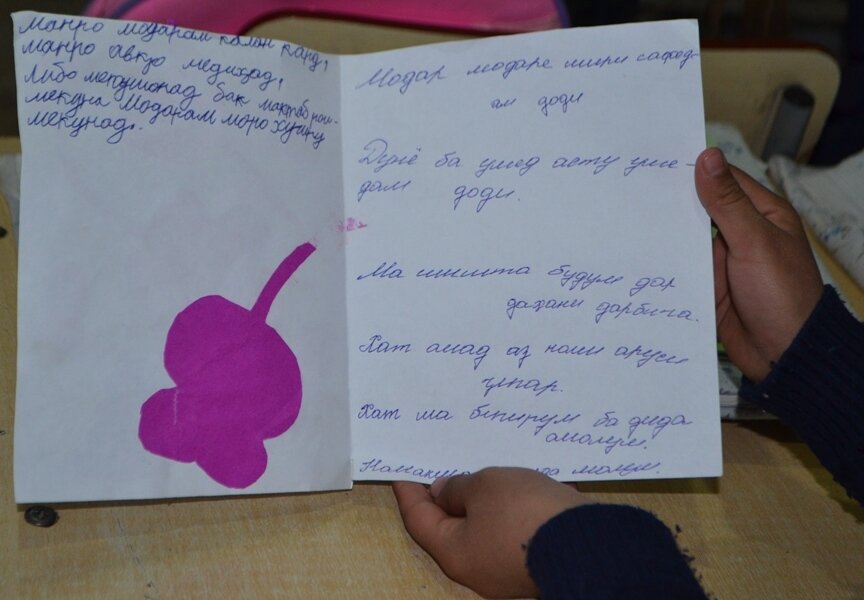 манро модарам калон кард,
манро авқо медиҳад,
либо мепушонад бак мактаб рои-
мекуна Модарам моро хунук
мекунад.
Модар модаре шири сафед-
ам доди
Дунё ба умед асту уме-
дам доди.
Ма шишта будум дар
дахани дарбича.
Хат омад аз номи аруси
Хат ма бигирум ба дида
амолум.
молум.